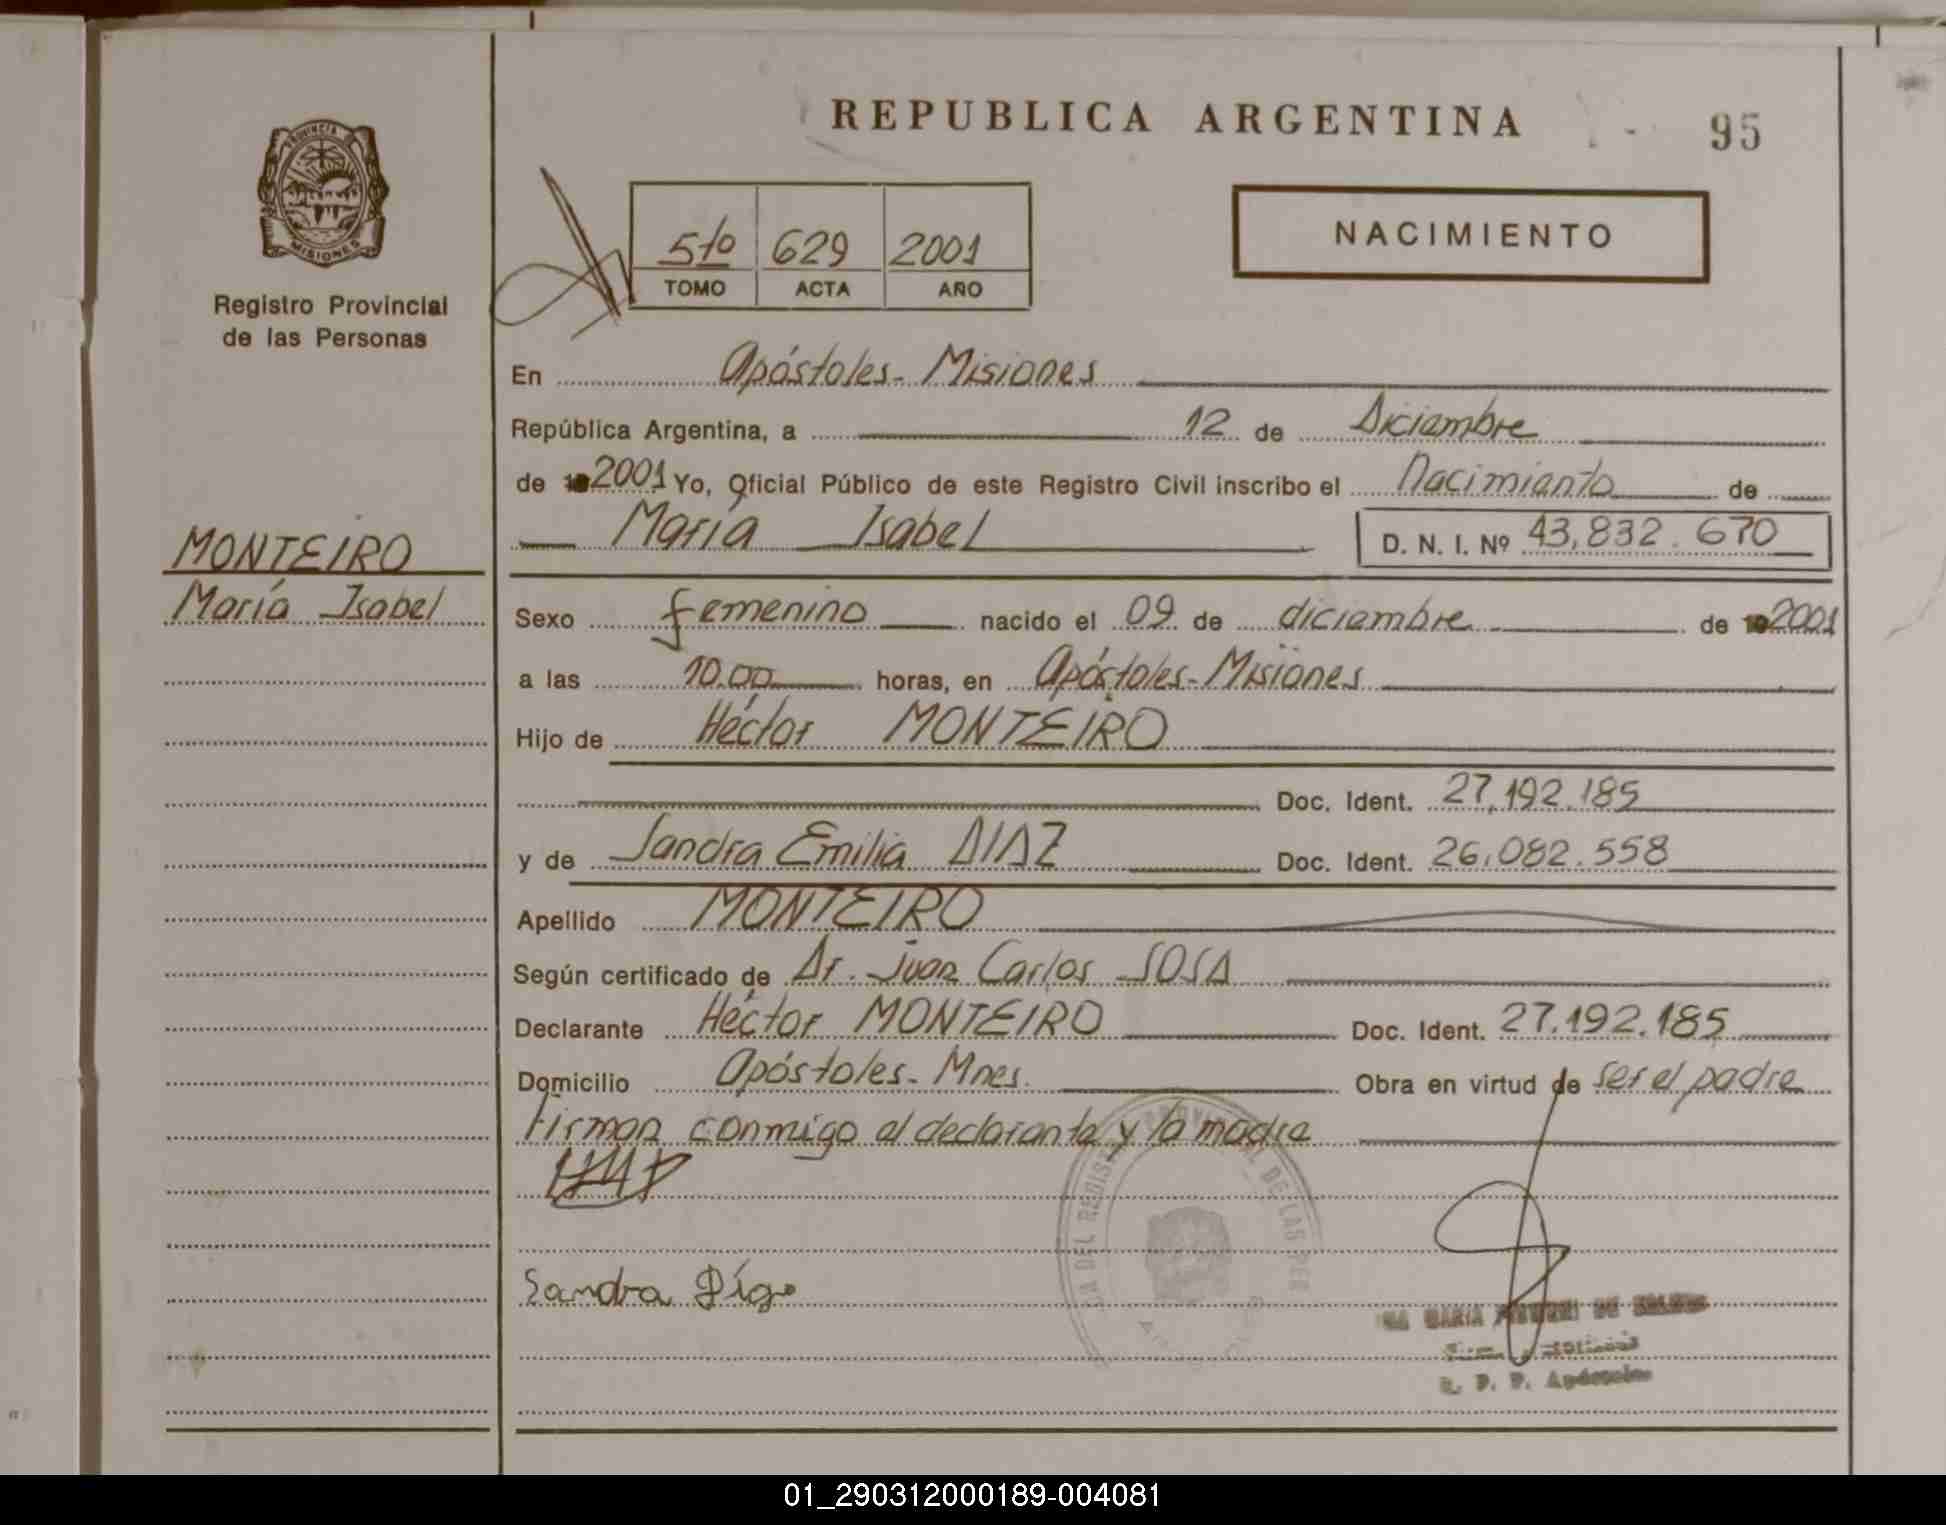 REPUBLICA ARGENTINA
95
PROVINCIA DE
MISIONES
Registro Provincial
de las Personas
5to 629 2001
TOMO ACTA AÑO
NACIMIENTO
En Apóstoles - Misiones
República Argentina, a 12 de Diciembre
de 2001 Yo, Oficial Público de este Registro Civil inscribo el Nacimiento de
María Isabel D. N. I. Nº 43,832.670
MONTEIRO
María Isabel
Sexo femenino nacido el 09 de diciembre de 2001
a las 10.00 horas, en Apóstoles - Misiones
Hijo de Héctor MONTEIRO
Doc. Ident. 27,192.185
y de Sandra Emilia DIAZ Doc. Ident. 26.082.558
Apellido MONTEIRO
Según certificado de Dr. Juan Carlos SOSA
Declarante Héctor MONTEIRO Doc. Ident. 27.192.185
Domicilio Apóstoles - Mnes. Obra en virtud de ser el padre
Firman conmigo el declarante y la madre
DEL REGISTRO PROVINCIAL DE LAS PER
Sandra
MARIA DE
R. P. P. Apóstoles
01_290312000189-004081